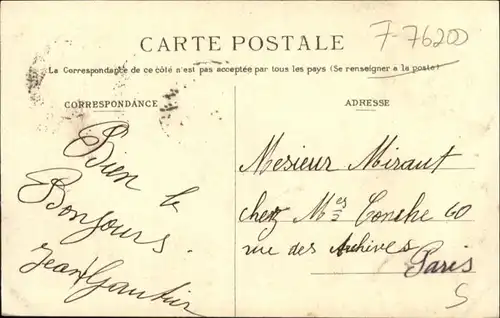 F-76200
CARTE POSTALE
La Correspondance de ce côté n'est pas acceptée par tous les pays (Se renseigner à la poste)
CORRESPONDANCE
Bien le
Bonjours.
Jean Gautier
ADRESSE
Mesieur Miraut
chez Mes Conche 60
rue des Archives
Paris
S